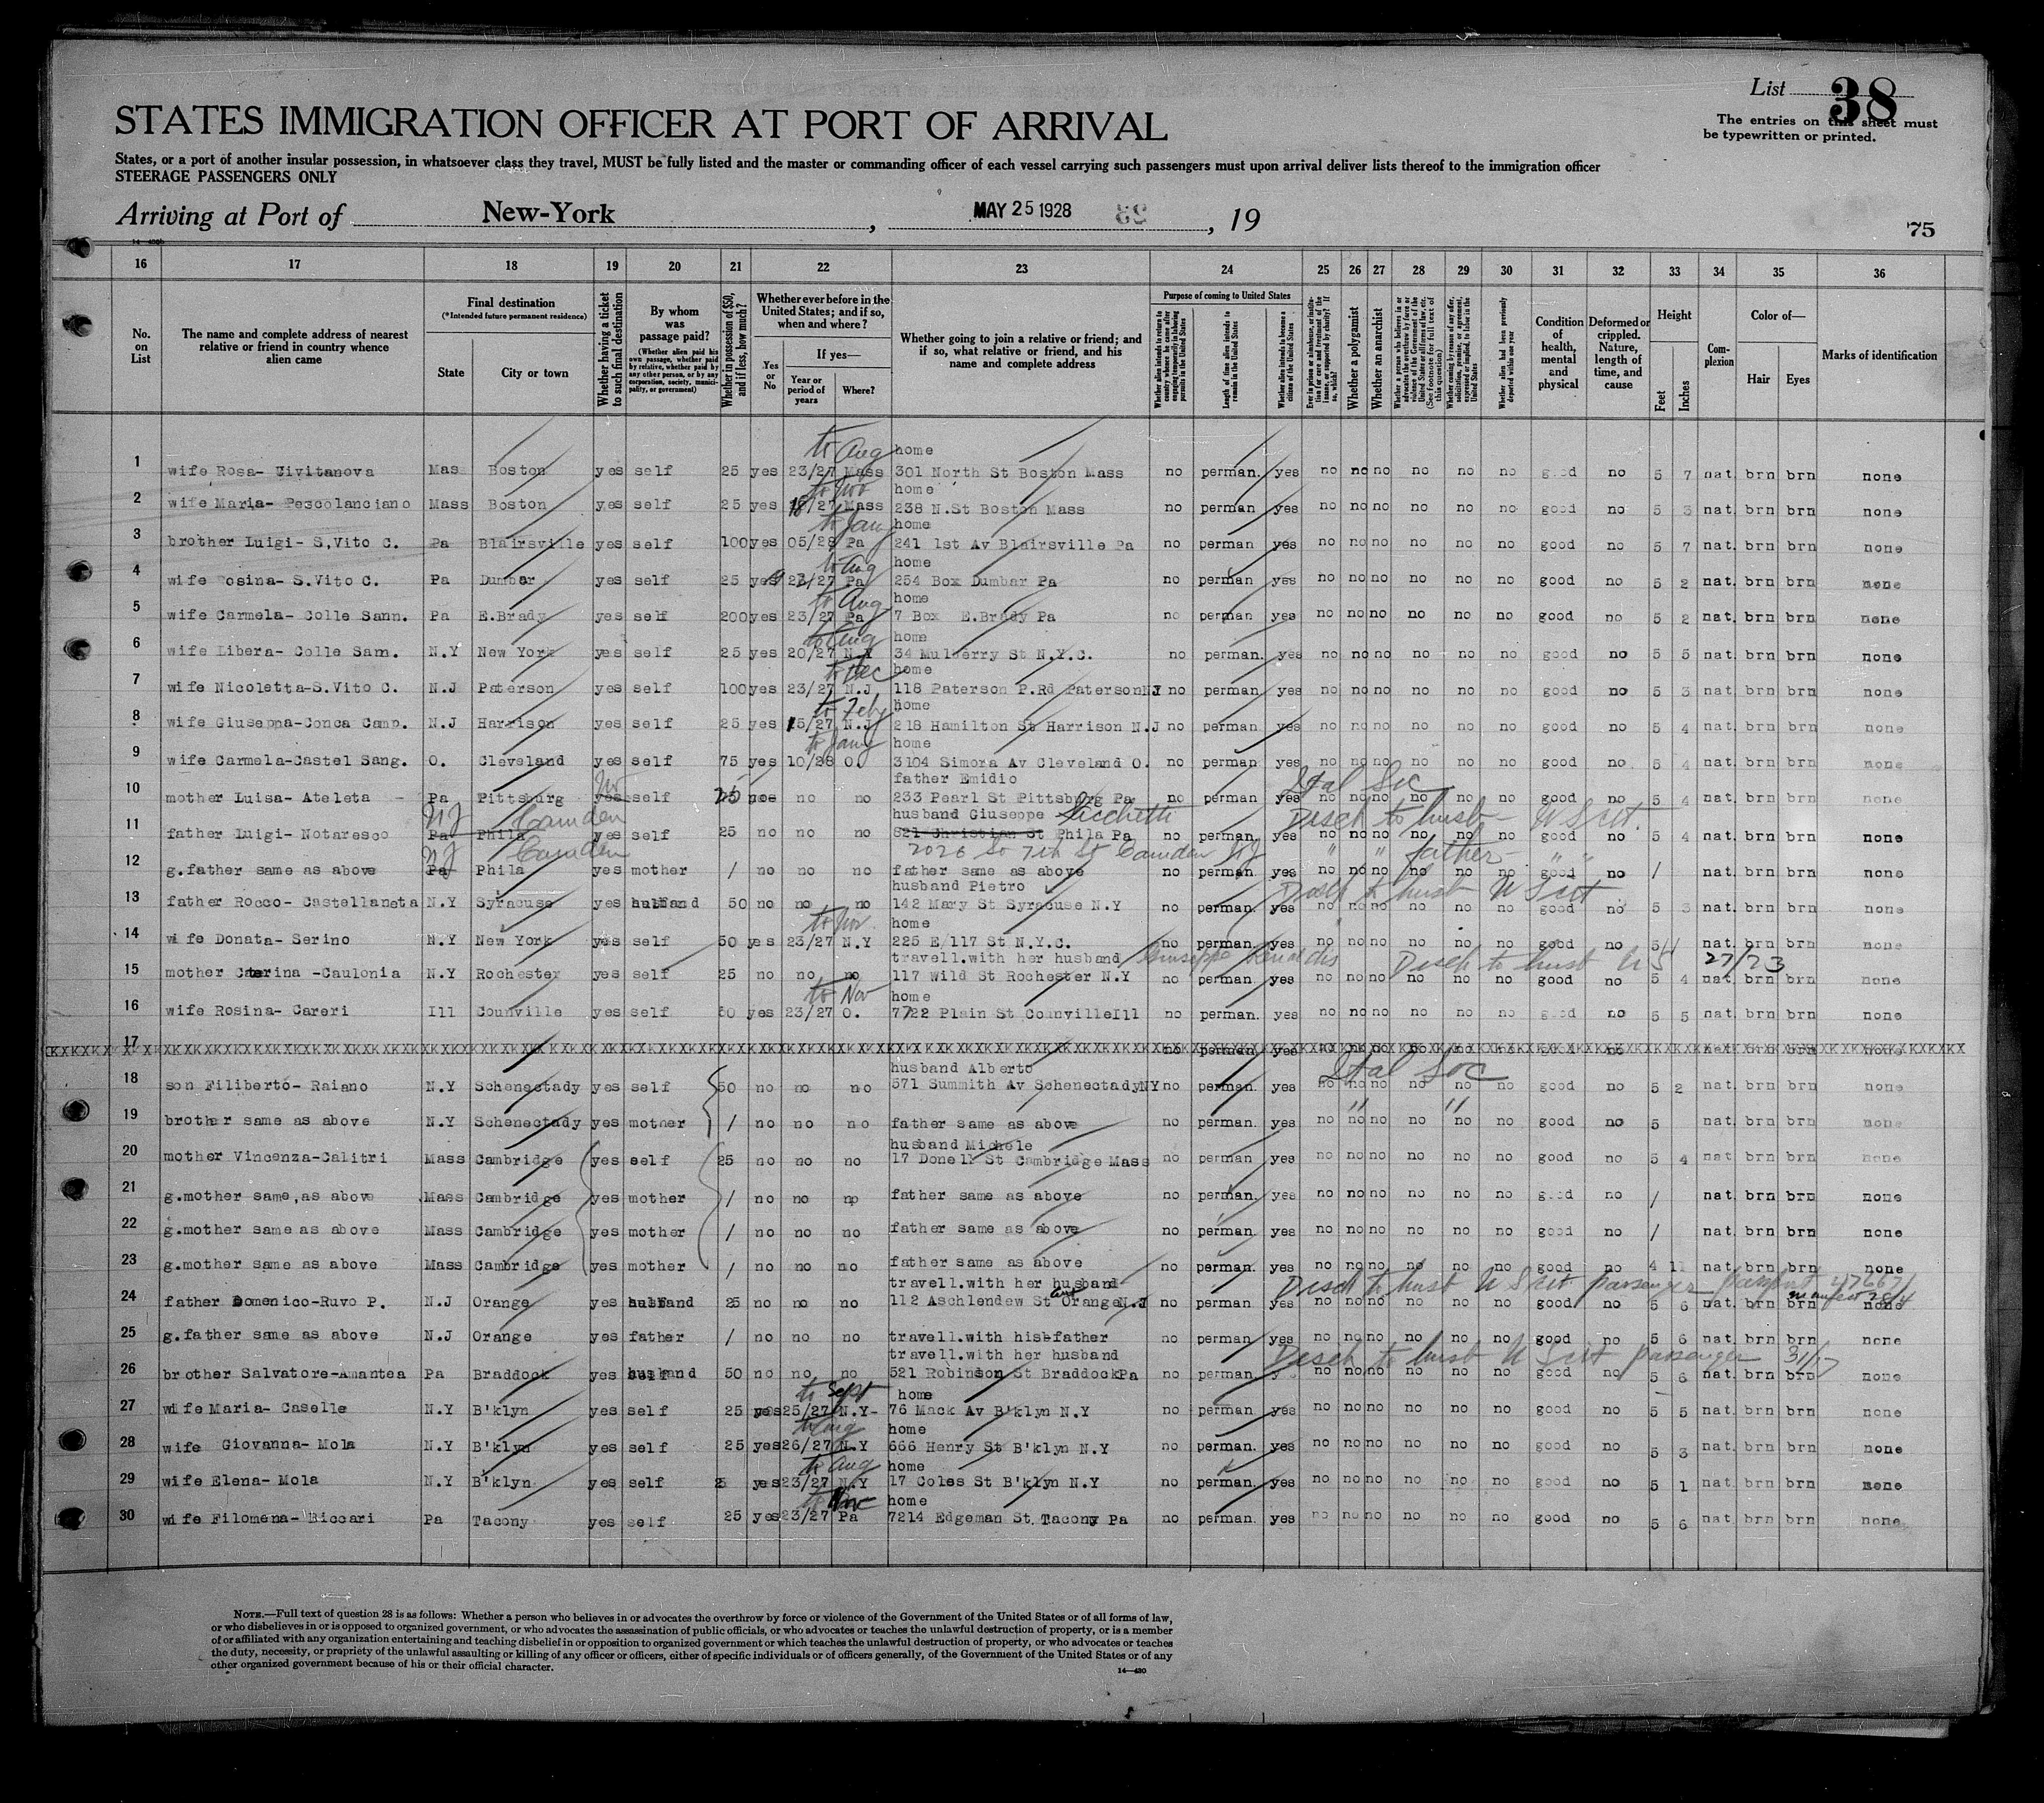 List 38
The entries on this sheet must
be typewritten or printed.
STATES IMMIGRATION OFFICER AT PORT OF ARRIVAL
States, or a port of another insular possession, in whatsoever class they travel, MUST be fully listed and the master or commanding officer of each vessel carrying such passengers must upon arrival deliver lists thereof to the immigration officer
STEERAGE PASSENGERS ONLY
Arriving at Port of New-York, MAY 25 1928, 19
75
16 17 18 19 20 21 22 23 24 25 26 27 28 29 30 31 32 33 34 35 36
No. on List
The name and complete address of nearest relative or friend in country whence alien came
Final destination (*Intended future permanent residence)
State
City or town
Whether having a ticket to such final destination
By whom was passage paid?
(Whether alien paid his own passage, whether paid by relative, whether paid by any other person, or by any corporation, society, municipality, or government)
Whether in possession of $50, and if less, how much?
Whether ever before in the United States; and if so, when and where?
Yes or No
If yes—
Year or period of years
Where?
Whether going to join a relative or friend; and if so, what relative or friend, and his name and complete address
Purpose of coming to United States
Length of time alien intends to remain in the United States
Whether alien intends to become a citizen of the United States
Whether a polygamist
Whether an anarchist
Condition of health, mental and physical
Deformed or crippled. Nature, length of time, and cause
Height
Feet
Inches
Complexion
Color of—
Hair
Eyes
Marks of identification
to Aug home
1 wife Rosa- Civitanova Mas Boston yes self 25 yes 23/27 Mass 301 North St Boston Mass no perman. yes no no no no no no good no 5 7 nat. brn brn none
to Nov home
2 wife Maria- Pescolanciano Mass Boston yes self 25 yes 18/27 Mass 238 N.St Boston Mass no perman yes no no no no no no good no 5 3 nat. brn brn none
to Jany home
3 brother Luigi- S,Vito C. Pa Blairsville yes self 100 yes 05/28 Pa 241 1st Av Blairsville Pa no perman yes no no no no no no good no 5 7 nat. brn brn none
to Aug home
4 wife osina- S.Vito C. Pa Dunbar yes self 25 yes 23/27 Pa 254 Box Dumbar Pa no perman yes no no no no no no good no 5 2 nat. brn brn none
to Aug home
5 wife Carmela- Colle Sann. Pa E.Brady yes self 200 yes 23/27 Pa 7 Box E.Brady Pa no perman yes no no no no no no good no 5 2 nat. brn brn none
to Aug home
6 wife Libera- Colle Sam. N.Y New York yes self 25 yes 20/27 N.Y 34 Mulberry St N.Y.C. no perman. yes no no no no no no good no 5 5 nat. brn brn none
to Dec home
7 wife Nicoletta-S.Vito C. N.J Paterson yes self 100 yes 23/27 N.J 118 Paterson P.Rd Paterson NJ no perman. yes no no no no no no good no 5 3 nat. brn brn none
to Feby home
8 wife Giuseppa-Conca Camp. N.J Harrison yes self 25 yes 15/27 N.J 218 Hamilton St Harrison N.J no perman. yes no no no no no no good no 5 4 nat. brn brn none
to Jany home
9 wife Carmela-Castel Sang. O. Cleveland yes self 75 yes 10/28 O. 3104 Simora Av Cleveland O. no perman. yes no no no no no no good no 5 4 nat. brn brn none
father Emidio Ital Soc
10 mother Luisa- Ateleta Pa Pittsburg yes self 25 no no no 233 Pearl St Pittsburg Pa no perman yes no no no no no no good no 5 4 nat. brn brn none
NJ Camden husband Giuseppe Disch to husb- U S cit.
11 father Luigi- Notaresco Pa Phila yes self 25 no no no 821 Christian St Phila Pa no perman. yes no no no no no no good no 5 4 nat. brn brn none
NJ Camden 2026 So 7th St Camden NJ " " father- " "
12 g.father same as above Pa Phila yes mother / no no no father same as above no perman. yes no no no no no no good no / nat. brn brn none
husband Pietro Disch to husb U S cit
13 father Rocco- Castellaneta N.Y Syracuse yes husband 50 no no no 142 Mary St Syracuse N.Y no perman. yes no no no no no no good no 5 3 nat. brn brn none
to Nov. home
14 wife Donata- Serino N.Y New York yes self 50 yes 23/27 N.Y 225 E/117 St N.Y.C. no perman. yes no no no no no no good no 5 4 nat. brn brn none
travell.with her husband Giuseppe Disch to husb U S 27/23
15 mother Caterina -Caulonia N.Y Rochester yes self 25 no no no 117 Wild St Rochester N.Y no perman. yes no no no no no no good no 5 4 nat. brn brn none
to Nov home
16 wife Rosina- Careri Ill Counville yes self 50 yes 23/27 O. 7722 Plain St CounvilleIll no perman. yes no no no no no no good no 5 5 nat. brn brn none
17
husband Alberto Ital Soc
18 son Filiberto- Raiano N.Y Schenectady yes self 50 no no no 571 Summith Av SchenectadyNY no perman. yes no no no no no no good no 5 2 nat. brn brn none
" "
19 brother same as above N.Y Schenectady yes mother / no no no father same as above no perman. yes no no no no no no good no 5 nat. brn brn none
husband Michele
20 mother Vincenza-Calitri Mass Cambridge yes self 25 no no no 17 Donell St Cambridge Mass no perman yes no no no no no no good no 5 4 nat brn brn none
21 g.mother same,as above Mass Cambridge yes mother / no no no father same as above no perman. yes no no no no no no good no / nat. brn brn none
22 g.mother same as above Mass Cambridge yes mother / no no no father same as above no perman. yes no no no no no no good no / nat. brn brn none
23 g.mother same as above Mass Cambridge yes mother / no no no father same as above no perman. yes no no no no no no good no 4 11 nat. brn brn none
travell.with her husband Disch to husb U S cit passenger
24 father Domenico-Ruvo P. N.J Orange yes husband 25 no no no 112 Aschlendew St Orange N.J no perman yes no no no no no no good no 5 6 nat. brn brn none
25 g.father same as above N.J Orange yes father / no no no travell.with his father no perman yes no no no no no no good no 5 6 nat. brn brn none
travell.with her husband Disch to husb U S cit passenger 31/17
26 brother Salvatore-Amantea Pa Braddock yes husband 50 no no no 521 Robinson St BraddockPa no perman. no no no no no no good no 5 6 nat. brn brn none
to Sept home
27 wife Maria- Caselle N.Y B'klyn yes self 25 yes 25/27 N.Y- 76 Mack Av B'klyn N.Y no perman yes no no no no no no good no 5 5 nat. brn brn none
to Aug home
28 wife Giovanna- Mola N.Y B'klyn yes self 25 yes 26/27 N.Y 666 Henry St B'klyn N.Y no perman. yes no no no no no no good no 5 3 nat. brn brn none
to Aug home
29 wife Elena- Mola N.Y B'klyn yes self 25 yes 23/27 N.Y 17 Coles St B'klyn N.Y no perman. yes no no no no no no good no 5 1 nat. brn brn none
to Nov home
30 wife Filomena- Biccari Pa Tacony yes self 25 yes 23/27 Pa 7214 Edgeman St Tacony Pa no perman. yes no no no no no no good no 5 6 nat. brn brn none
NOTE.—Full text of question 28 is as follows: Whether a person who believes in or advocates the overthrow by force or violence of the Government of the United States or of all forms of law,
or who disbelieves in or is opposed to organized government, or who advocates the assassination of public officials, or who advocates or teaches the unlawful destruction of property, or is a member
of or affiliated with any organization entertaining and teaching disbelief in or opposition to organized government or which teaches the unlawful destruction of property, or who advocates or teaches
the duty, necessity, or propriety of the unlawful assaulting or killing of any officer or officers, either of specific individuals or of officers generally, of the Government of the United States or of any
other organized government because of his or their official character.
14—430